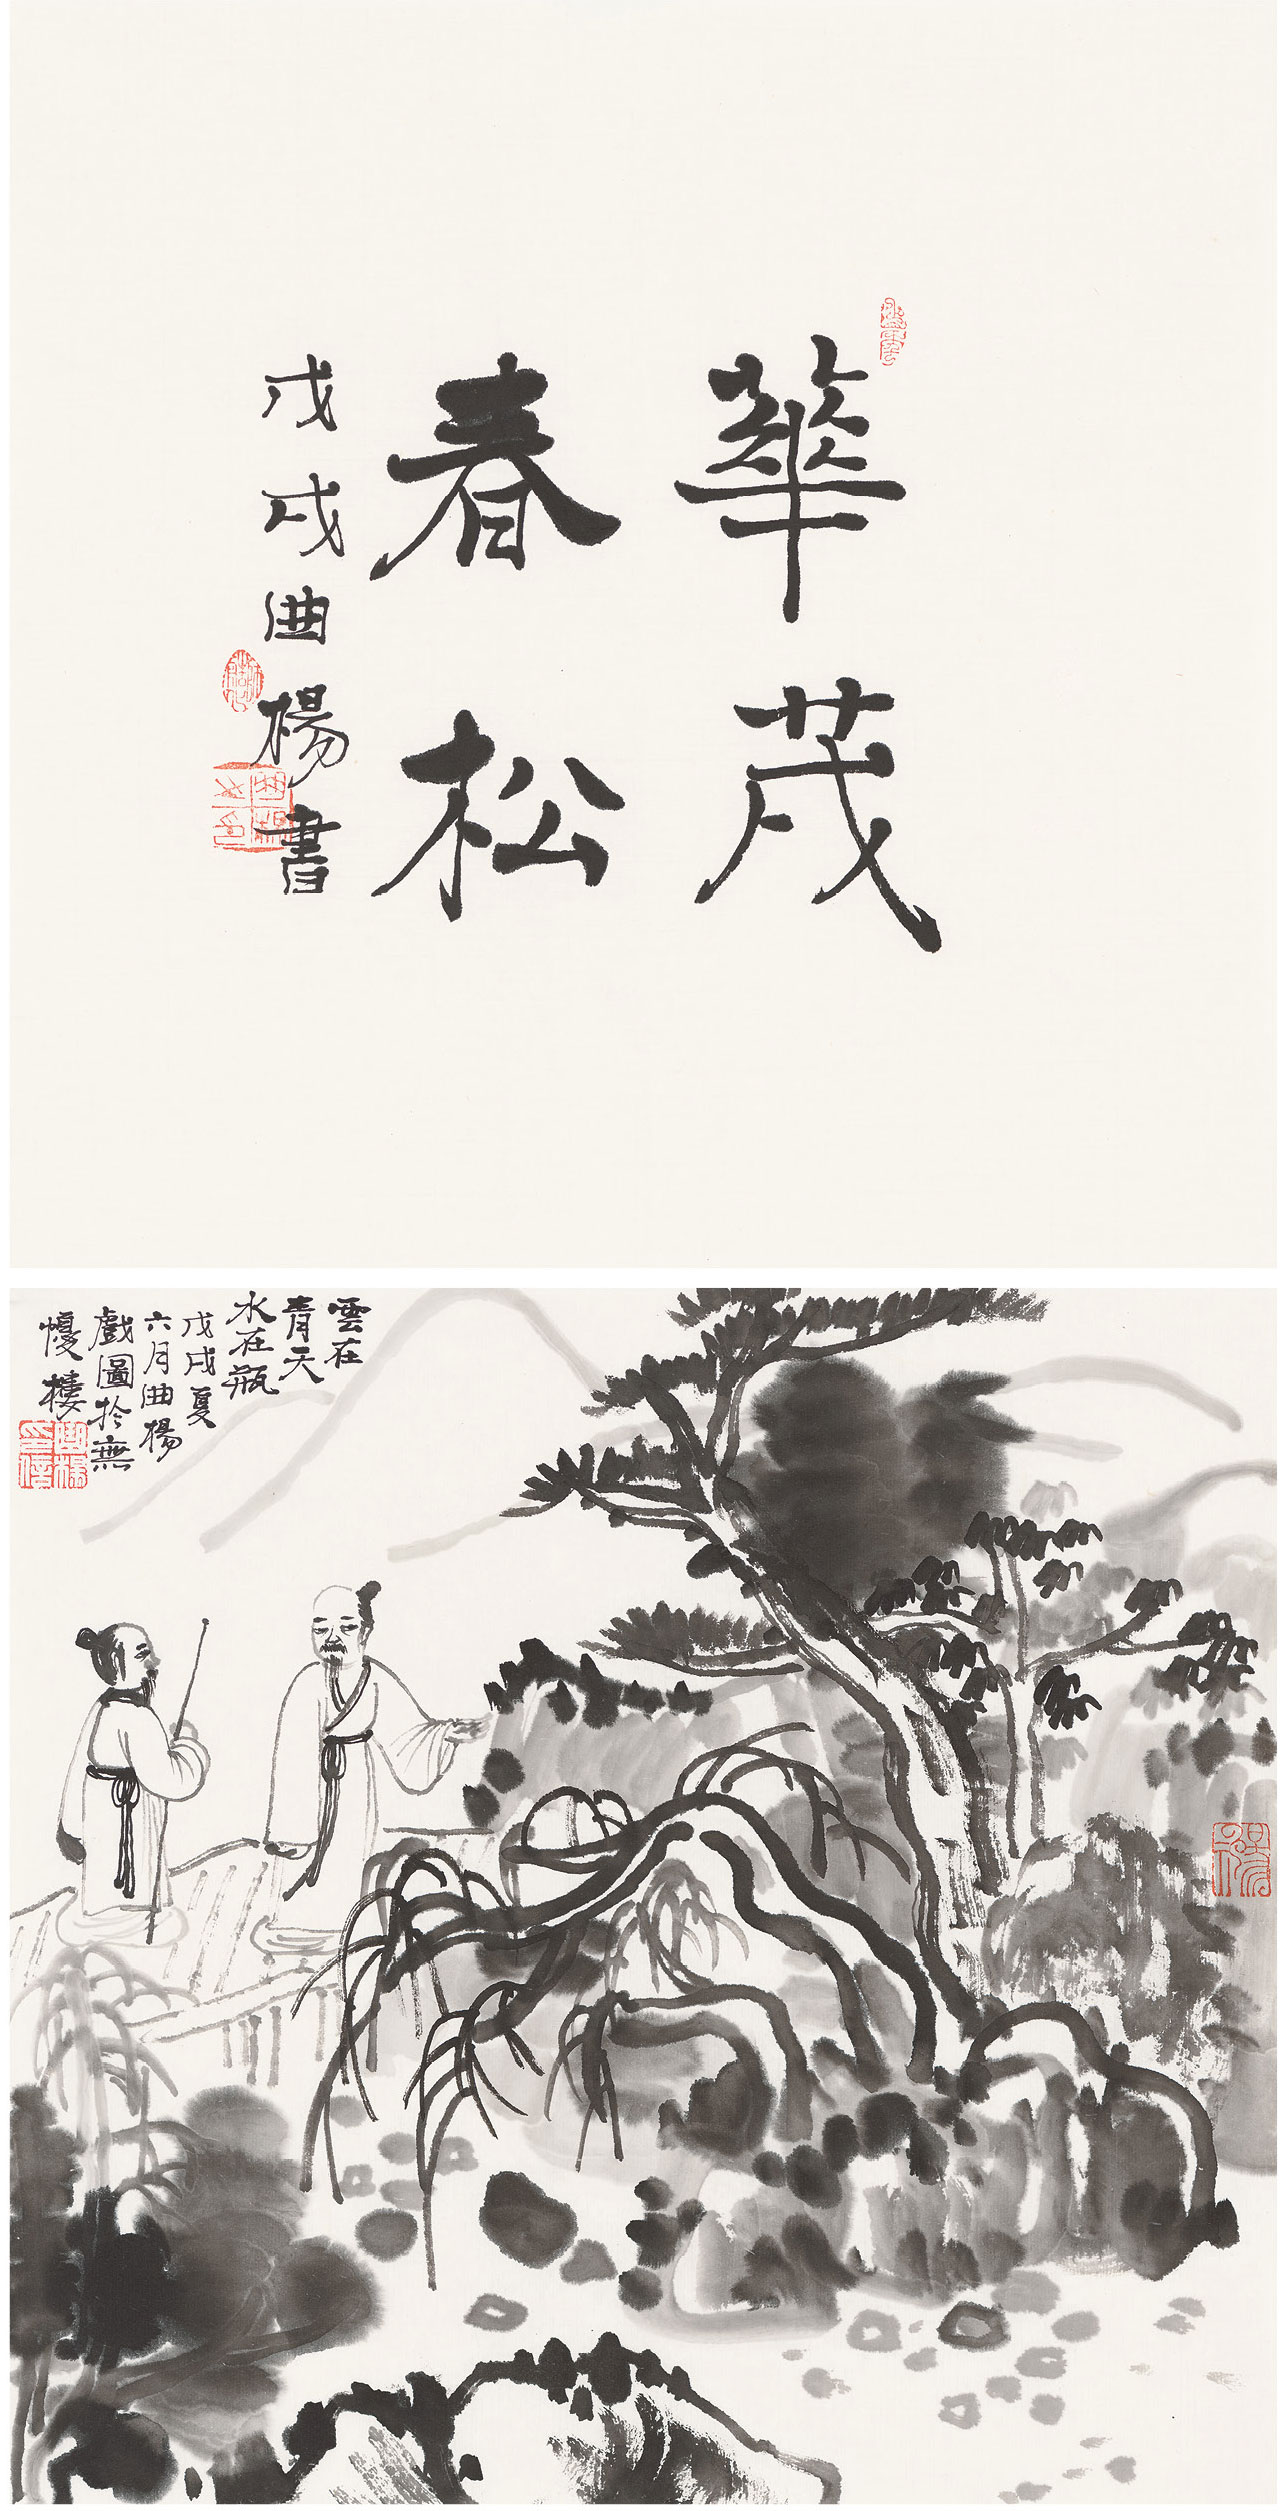 華茂
春松
戊戌曲楊書
雲在
青天
水在瓶
戊戌夏
六月曲楊
戲圖於無
憂樓